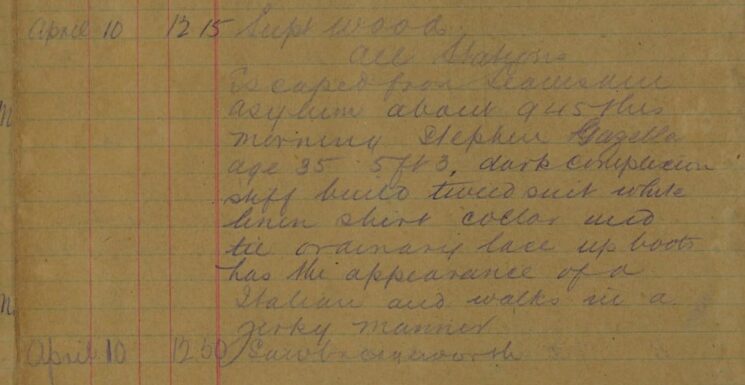 April 10 12 15 Supt Wood
all Stations
Escaped from
asylum about 9 45 this
morning Stephen
age 35 5 ft 3 dark complexion
stiff build tweed suit white
linen shirt collar and
tie ordinary lace up boots
has the appearance of a
Italian and walks in a
jerky manner
April 10 12 50